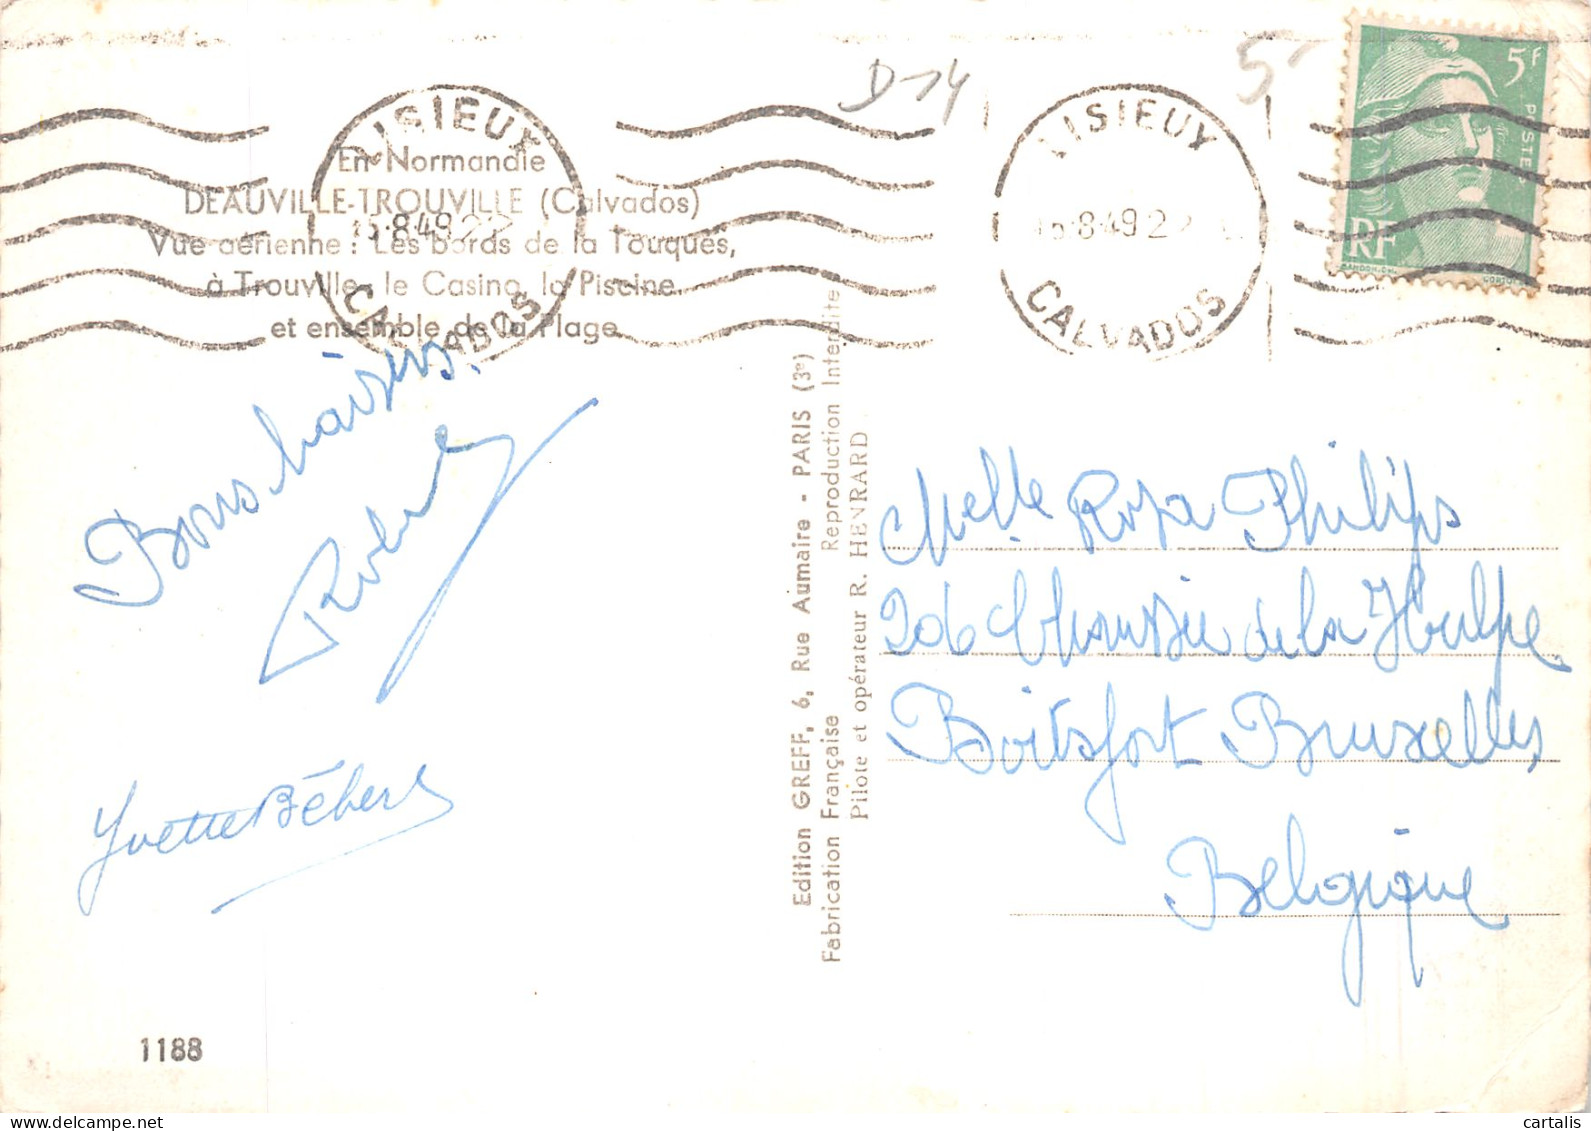 D 14
5
5F
POSTES
RF
GANDON.DEL.
CORTOT
LISIEUX
15·8·49
CALVADOS
LISIEUX
15·8·49
CALVADOS
En Normandie
DEAUVILLE-TROUVILLE (Calvados)
Vue aérienne : Les bords de la Touques,
à Trouville, le Casino, la Piscine,
et ensemble de la Plage
Bons baisers.
Robert
Yvette Bébert
1188
Edition GREFF, 6, Rue Aumaire - PARIS (3e)
Fabrication Française Reproduction Interdite
Pilote et opérateur R. HENRARD
Melle Rosa Philips
206 Chaussée de la Hulpe
Boitsfort Bruxelles
Belgique
cartalis.com